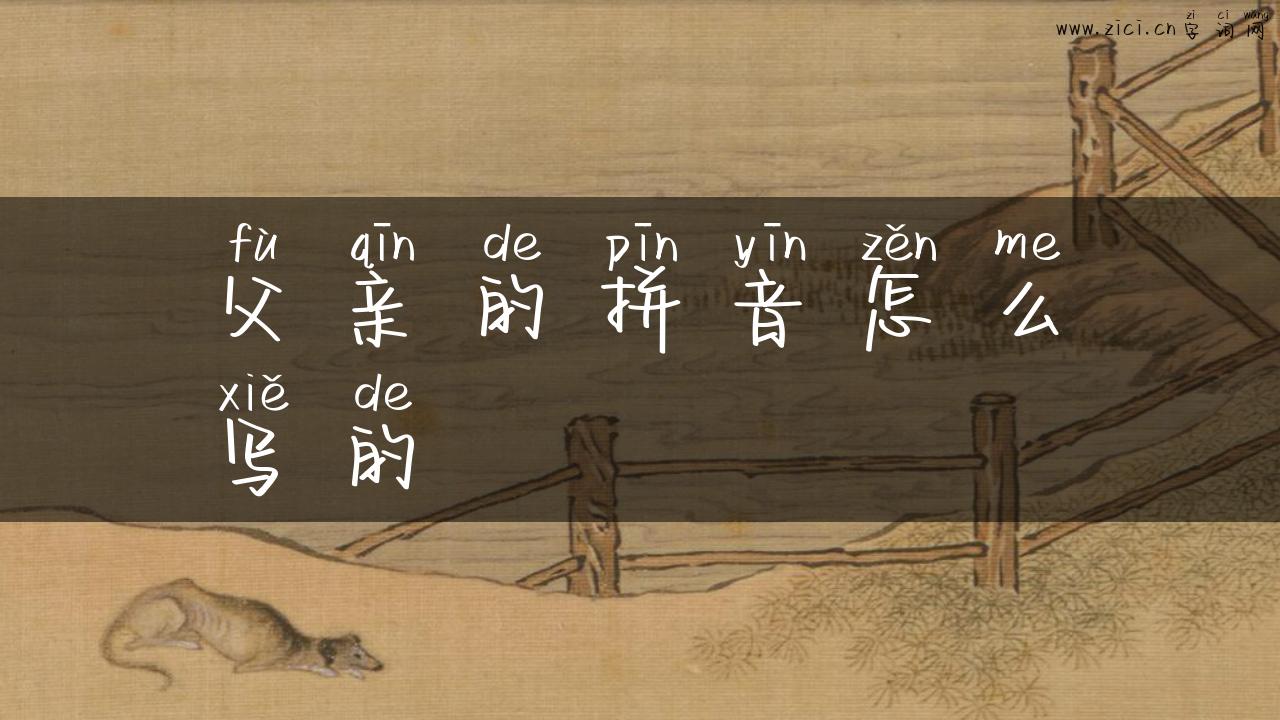 zi ci wang
www.zici.cn 字词网
fù qīn de pīn yīn zěn me
父亲的拼音怎么
xiě de
写的